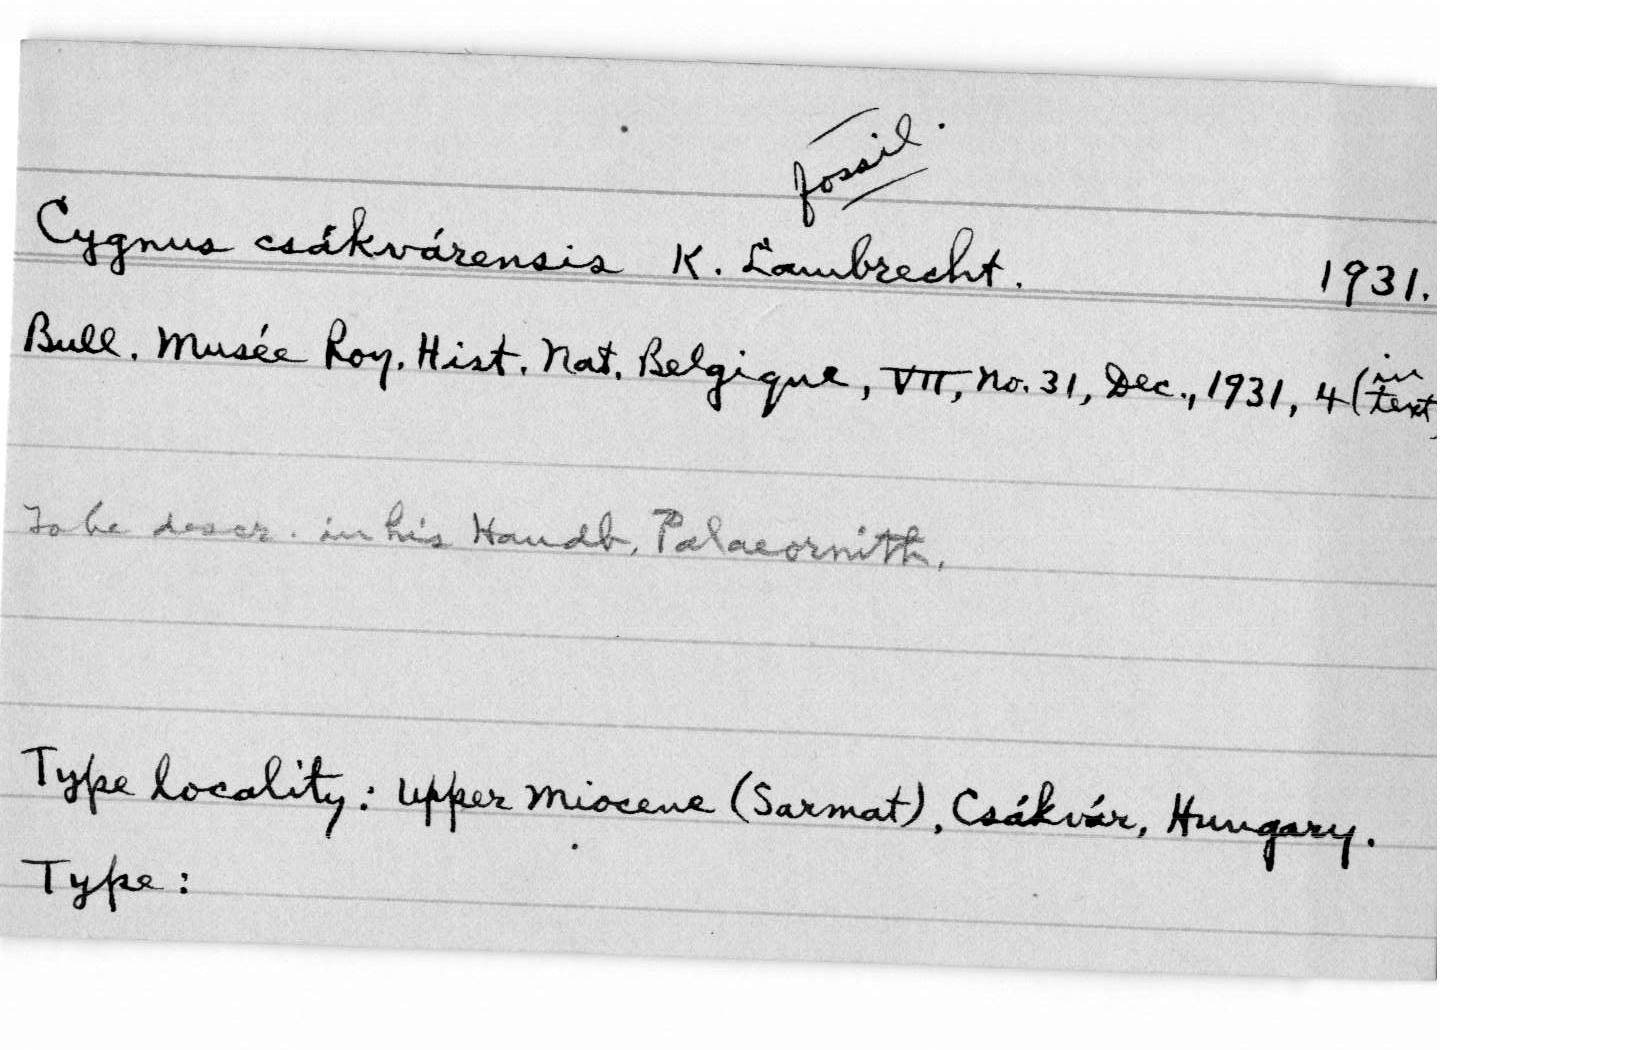 fossil.
Cygnus csákvárensis K. Lambrecht. 1931.
Bull. Musée Roy. Hist. Nat. Belgique, VII, No. 31, Dec., 1931, 4 (in text)
To be descr. in his Handb. Palaeornith.
Type locality: Upper Miocene (Sarmat), Csákvár, Hungary.
Type: